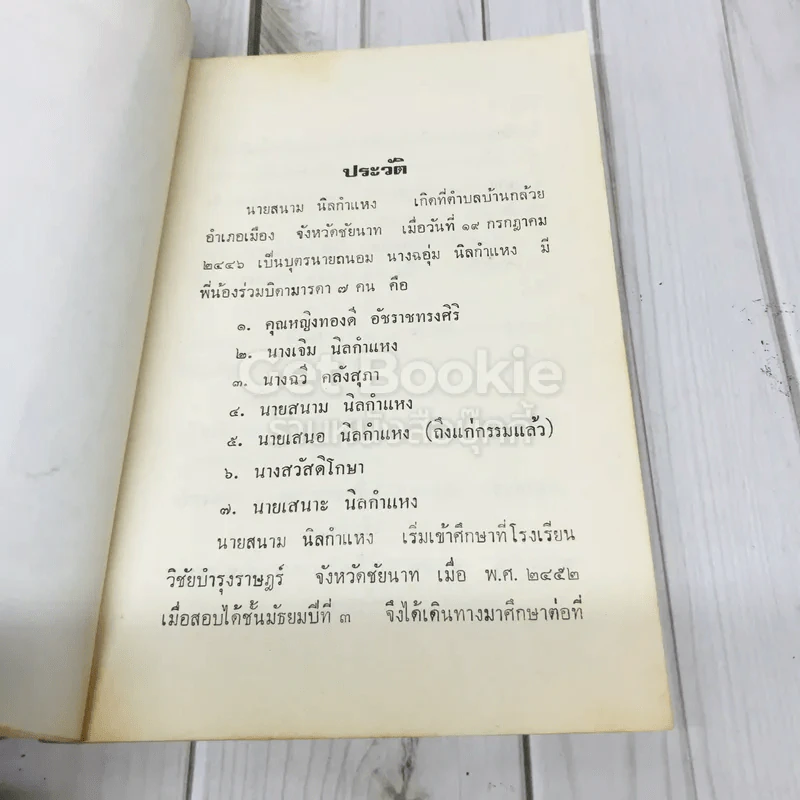 ประวัติ
นายสนาม นิลกำแหง เกิดที่ตำบลบ้านกล้วย
อำเภอเมือง จังหวัดชัยนาท เมื่อวันที่ ๑๙ กรกฎาคม
๒๔๔๖ เป็นบุตรนายถนอม นางฉอุ่ม นิลกำแหง มี
พี่น้องร่วมบิดามารดา ๗ คน คือ
๑. คุณหญิงทองดี อัชราชทรงศิริ
๒. นางเจิม นิลกำแหง
๓. นางฉวี คลังสุภา
๔. นายสนาม นิลกำแหง
๕. นายเสนอ นิลกำแหง (ถึงแก่กรรมแล้ว)
๖. นางสวัสดิโกษา
๗. นายเสนาะ นิลกำแหง
นายสนาม นิลกำแหง เริ่มเข้าศึกษาที่โรงเรียน
วิชัยบำรุงราษฎร์ จังหวัดชัยนาท เมื่อ พ.ศ. ๒๔๕๒
เมื่อสอบได้ชั้นมัธยมปีที่ ๓ จึงได้เดินทางมาศึกษาต่อที่
Get Bookie
รวมหนังสือบุ๊กกี้